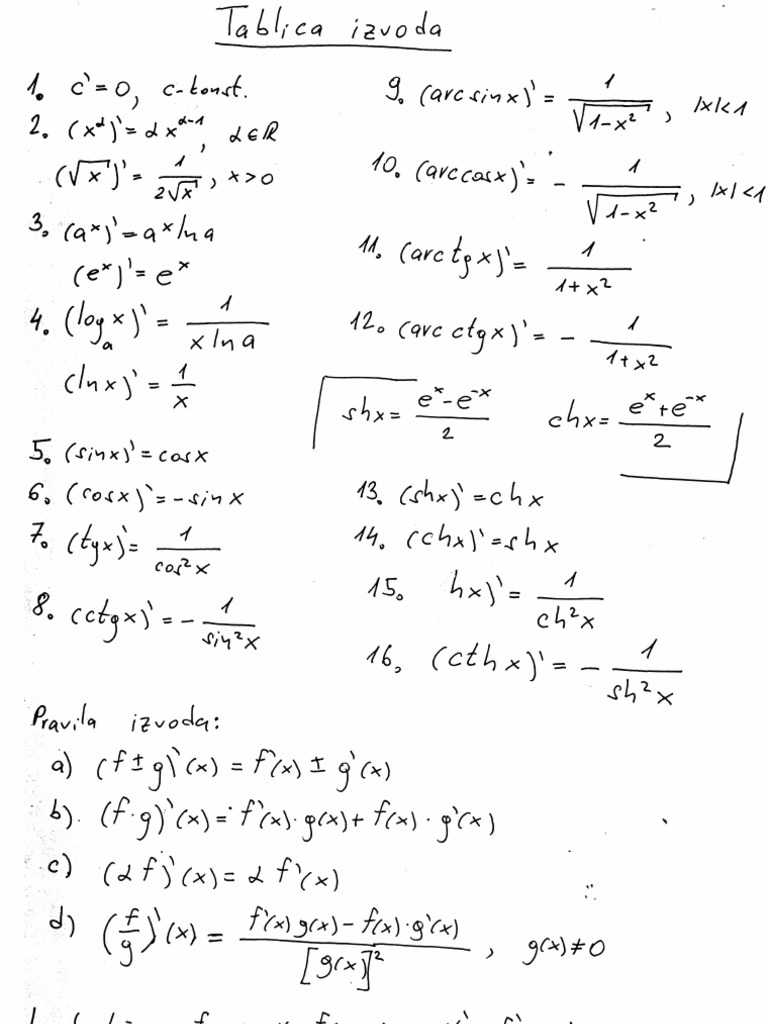 Tablica izvoda
1. c'=0, c-konst.
2. (x^α)'=αx^(α-1), α∈ℝ
(√x)'= 1/(2√x), x>0
3. (a^x)'=a^x ln a
(e^x)'=e^x
4. (log_a x)'= 1/(x ln a)
(ln x)'= 1/x
5. (sinx)'=cosx
6. (cosx)'=-sinx
7. (tgx)'= 1/(cos²x)
8. (ctgx)'=- 1/(sin²x)
9. (arcsinx)'= 1/√(1-x²), |x|<1
10. (arccosx)'= - 1/√(1-x²), |x|<1
11. (arctgx)'= 1/(1+x²)
12. (arcctgx)'= - 1/(1+x²)
shx= (e^x-e^-x)/2 chx= (e^x+e^-x)/2
13. (shx)'=chx
14. (chx)'=shx
15. hx)'= 1/(ch²x)
16. (cthx)'= - 1/(sh²x)
Pravila izvoda:
a) (f±g)'(x)=f'(x)±g'(x)
b). (f·g)'(x)=f'(x)·g(x)+f(x)·g'(x)
c) (αf)'(x)=αf'(x)
d) (f/g)'(x)= (f'(x)g(x)-f(x)·g'(x))/[g(x)]², g(x)≠0